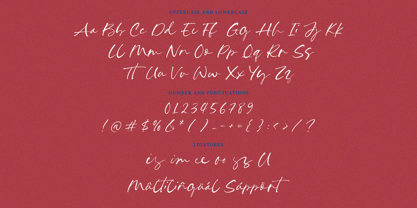 UPPERCASE AND LOWERCASE
Aa Bb Cc Dd Ee Ff Gg Hh Ii Jj Kk
Ll Mm Nn Oo Pp Qq Rr Ss
Tt Uu Vv Ww Xx Yy Zz
NUMBER AND PUNCTUATIONS
0123456789
LIGATURES
Multilingual Support